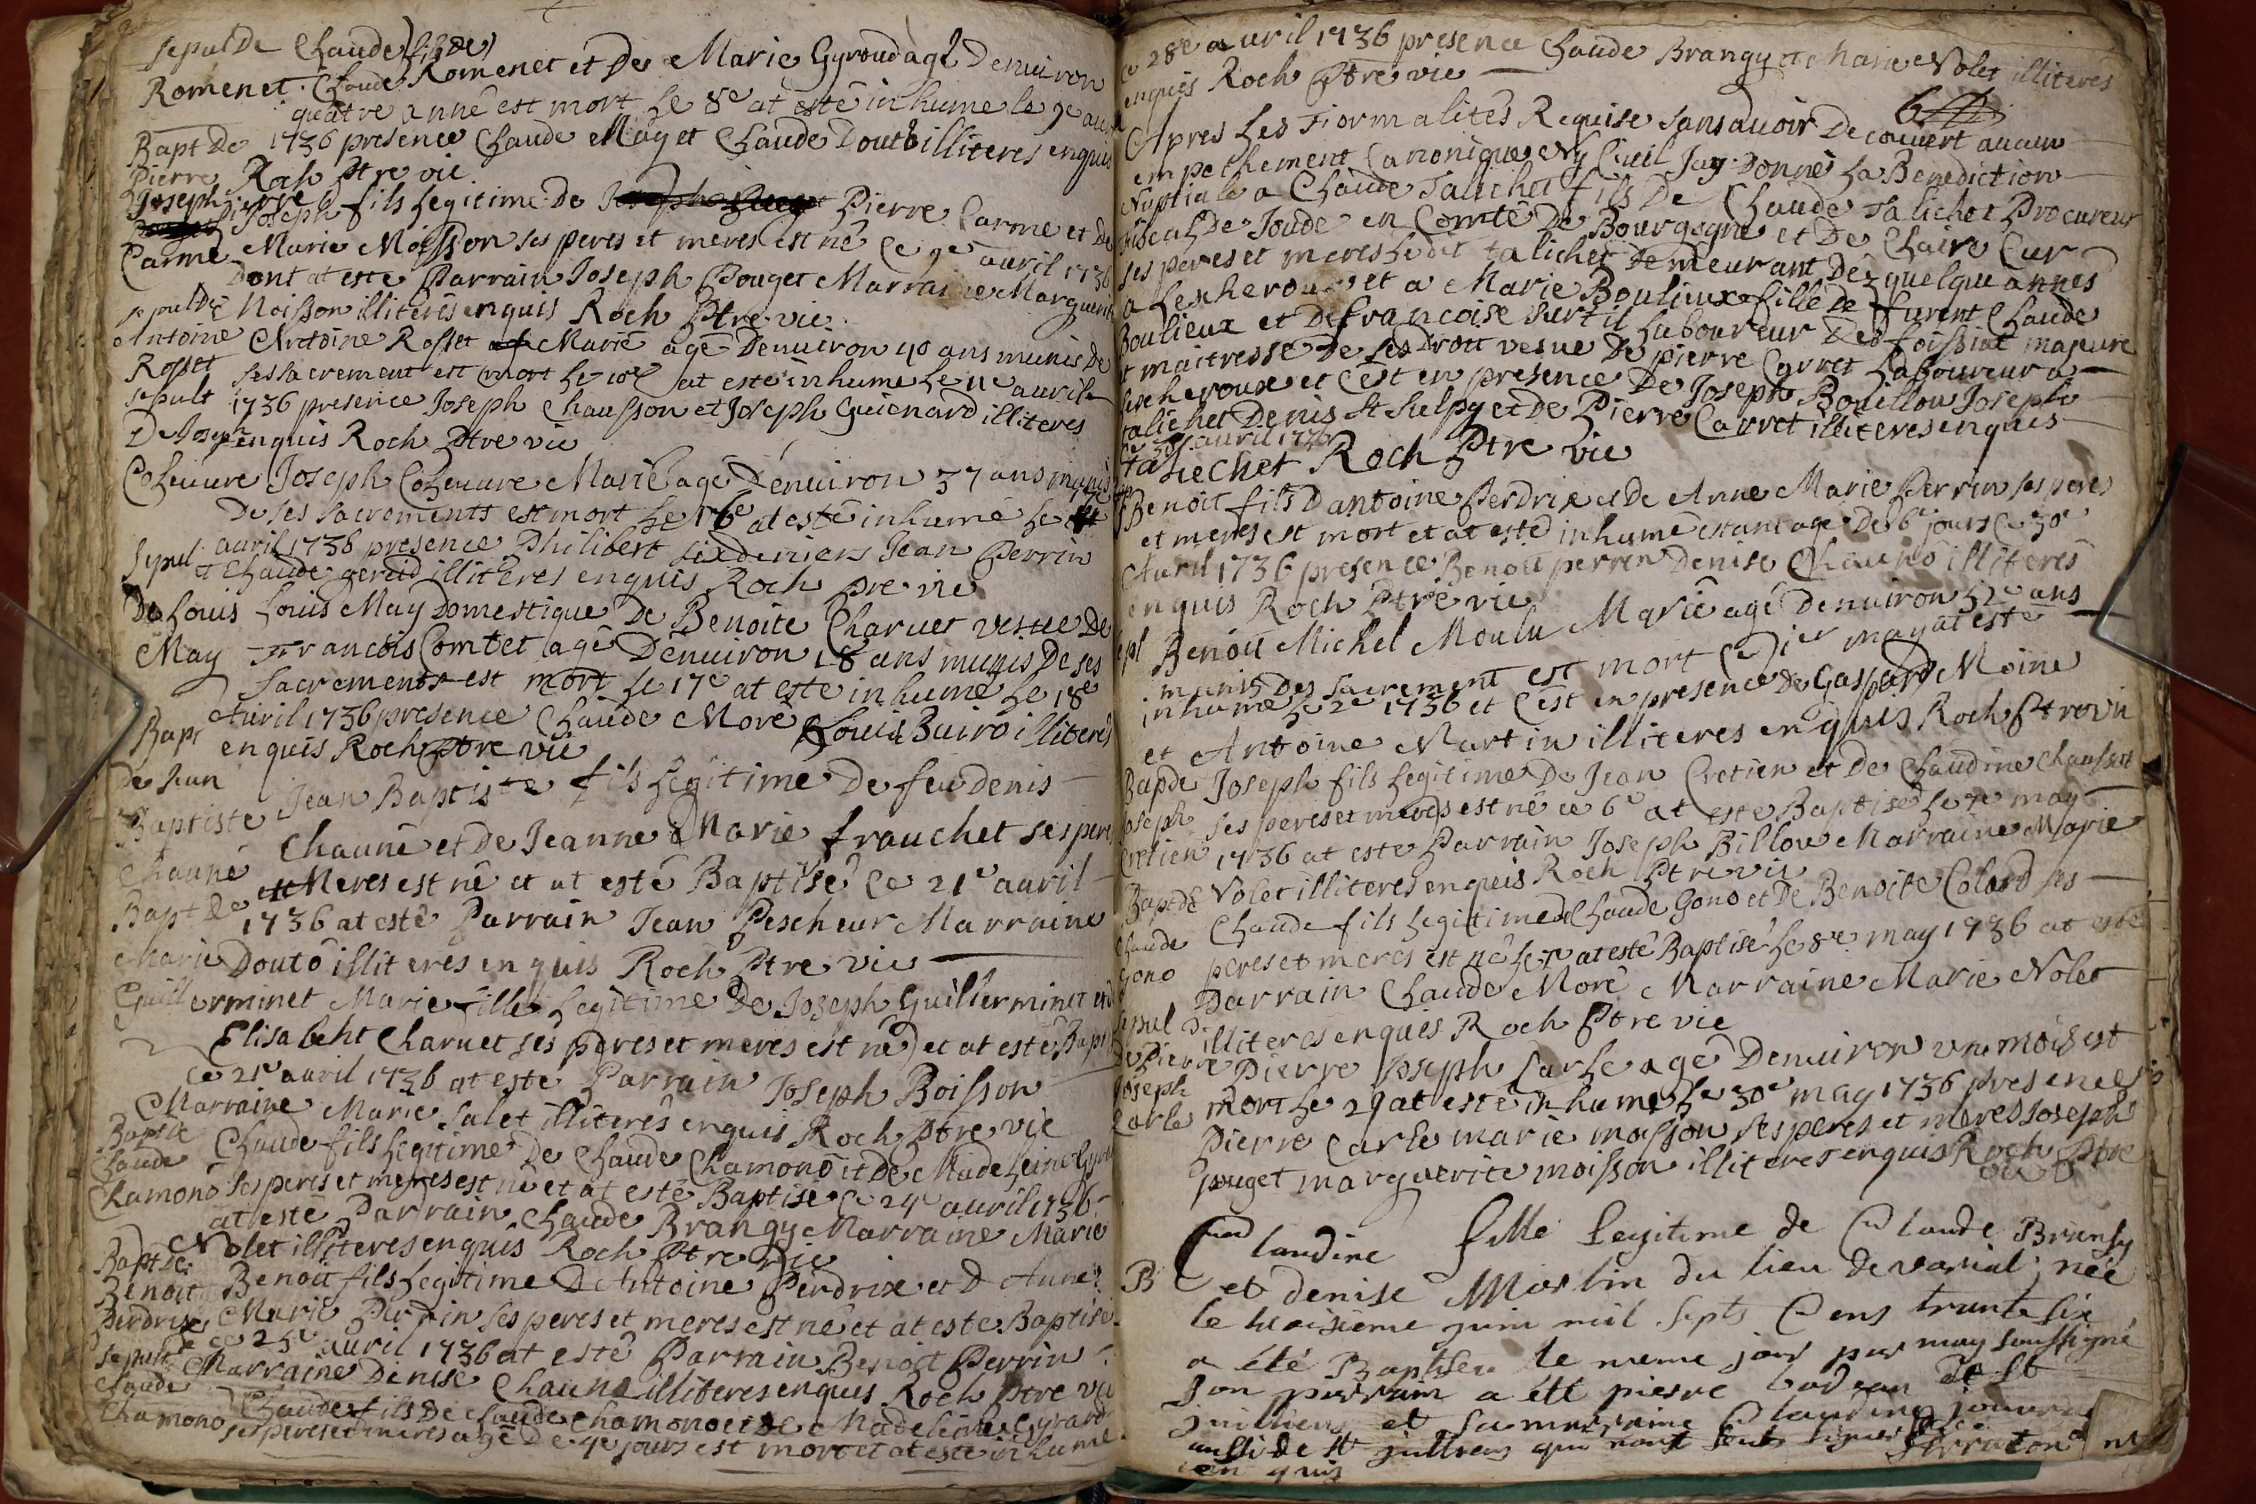 sepul de Claude fils de
Romenet Claude Romenet et De Marie Gyroud agé Denuiron
quatre anné est mort Le 8e at esté inhume le 9e
Bapt De 1736 presence Claude May et Claude Douto illiteres enquis
Pierre Roch Ptre vic
Joseph Pierre Joseph fils Legitime De Pierre Carme et de
Carme Marie Moisson ses peres et meres est né Ce 9e auril 1736
Dont at esté Parrain Joseph Pouget Marraine Marguerite
sepul De Moisson illiterés enquis Roch Ptre vic
Antoine Antoine Rosset Marié agé Denuiron 40 ans munis De
Rosset ses sacrement est mort Le 10e at esté inhume Le 11e auril
sepult 1736 presence Joseph Chausson et Joseph Guienard illiteres
De Joseph enquis Roch Ptre vic
Coleuure Joseph Coleuure Marié agé Denuiron 37 ans munis
De ses sacrements est mort Le 16e at esté inhumé Le
auril 1736 presence Philibert sixdeniers Jean Perrin
Sepul et Claude illiteres enquis Roch Ptre vic
De Louis Louis May Domestique De Benoite Charuet vesue De
May Francois Comtet agé Denuiron 18 ans munis De ses
Sacrements est mort Le 17e at esté inhumé Le 18e
Auril 1736 presence Claude Moré Louis Buiro illiterés
Bapt enquis Roch Ptre vic
De Jean
Baptiste Jean Baptiste fils Legitime De feu denis
Chauné Chauné et de Jeanne Marie frauchet ses peres
et Meres est né et at esté Baptisé Ce 21e auril
Bapt De 1736 at esté Parrain Jean Pescheur Marraine
Marie Doutô illiterés enquis Roch Ptre vic
Guillerminet Marie fille Legitime De Joseph Guillerminet et
Elisabeht Charuet ses peres et meres est né et at esté Bapt
Ce 21e auril 1736 at esté Parrain Joseph Boisson
Marraine Marie Salet illiterés enquis Roch Ptre vic
Bapt De
Claude Claude fils Legitime De Claude Chamonô et De Madeleine
Chamonô ses peres et meres est né et at esté Baptisé Ce 24e auril 1736
at esté Parrain Claude Brangy Marraine Marie
Nolet illiteres enquis Roch Ptre vic
Bapt De
Benoit Benoit fils Legitime D Antoine Perdrix et D Anne
Perdrix Marie Perrin ses peres et meres est né et at esté Baptisé
ce 25e auril 1736 at esté Parrain Benoit Perrin
sepult De Marraine Denise Chauné illiteres enquis Roch Ptre vic
Claude Claude fils De Claude Chamono et De Madeleine Gyraud
Chamono ses peres et meres agé De 4e jours est mort et at esté inhumé
Ce 28e auril 1736 presence Claude Brangy et Marie Nolet illiterés
enquis Roch Ptre vic
Apres Les Formalités Requise sans auoir Decouvert aucun
empechement Canonique Ny Ciuil Jay Donné La Benediction
Nuptiale a Claude Talichet fils De Claude Talichet Procureur
fiscal De Joude en Comté De Bourgogne et De Claire Cur
ses peres et meres Ledit talichet demeurant Dez quelque annés
a Lescheroux et a Marie Boulieux fille de furent Claude
Boulieux et De francoise Laboureur Des foissiat majeure
et maitresse De ses Droit vesue De Pierre Carret Laboureur a
Lescheroux et Cest en presence De Joseph Bouillou Joseph
talichet Denis St Sulpy et De Pierre Carret illiteres enquis
ce auril 1736
taliechet Roch Ptre vic
Benoit fils D antoine Perdrix et De Anne Marie Perrin ses peres
et meres est mort et at esté inhumé etant agé De 6e jours Ce 30e
Auril 1736 presence Benoit perren Denise Chauno illiteres
enquis Roch Ptre vic
sepl Benoit Michel Moulu Marié agé Denuiron 52e ans
munis Des sacrement est mort Ce 1er may at esté
inhumé Le 2e 1736 et Cest en presence De Gaspard Moine
et Antoine Martin illiteres enquis Roch Ptre vic
Bap de Joseph fils Legitime De Jean Cretien et De Claudine Chausson
Joseph ses peres et meres est né ce 6e at esté Baptisé Le 7e may
Cretien 1736 at esté Parrain Joseph Billou Marraine Marie
Bapt De Volet illiteres enquis Roch Ptre vic
Claude Claude fils Legitime De Claude Gono et De Benoite Colard ses
Gono peres et meres est né Le 7e at esté Baptisé Le 8e may 1736 at esté
Parrain Claude Moré Marraine Marie Nolet
Sepul illiteres enquis Roch Ptre vic
De Pierre Pierre Joseph Carle agé Denuiron un mois est
Joseph mort Le 29 at esté inhumé Le 30e may 1736 presence
Carle Pierre Carle marie moisson ses peres et meres Joseph
pouget marguerite moisson illiteres enquis Roch Ptre
vic
Claudine fille Legitime de Claude Brangy
B et denise Morlin du lieu de varial, née
le troisieme juin mil Septs Cens trante six
a été Baptisée le meme jour par moy soussigné
son parrain a été pierre badean de St
jullien et sa marraine Claudine jouuray
aussi de St jullien qui nont seut signer
enquis